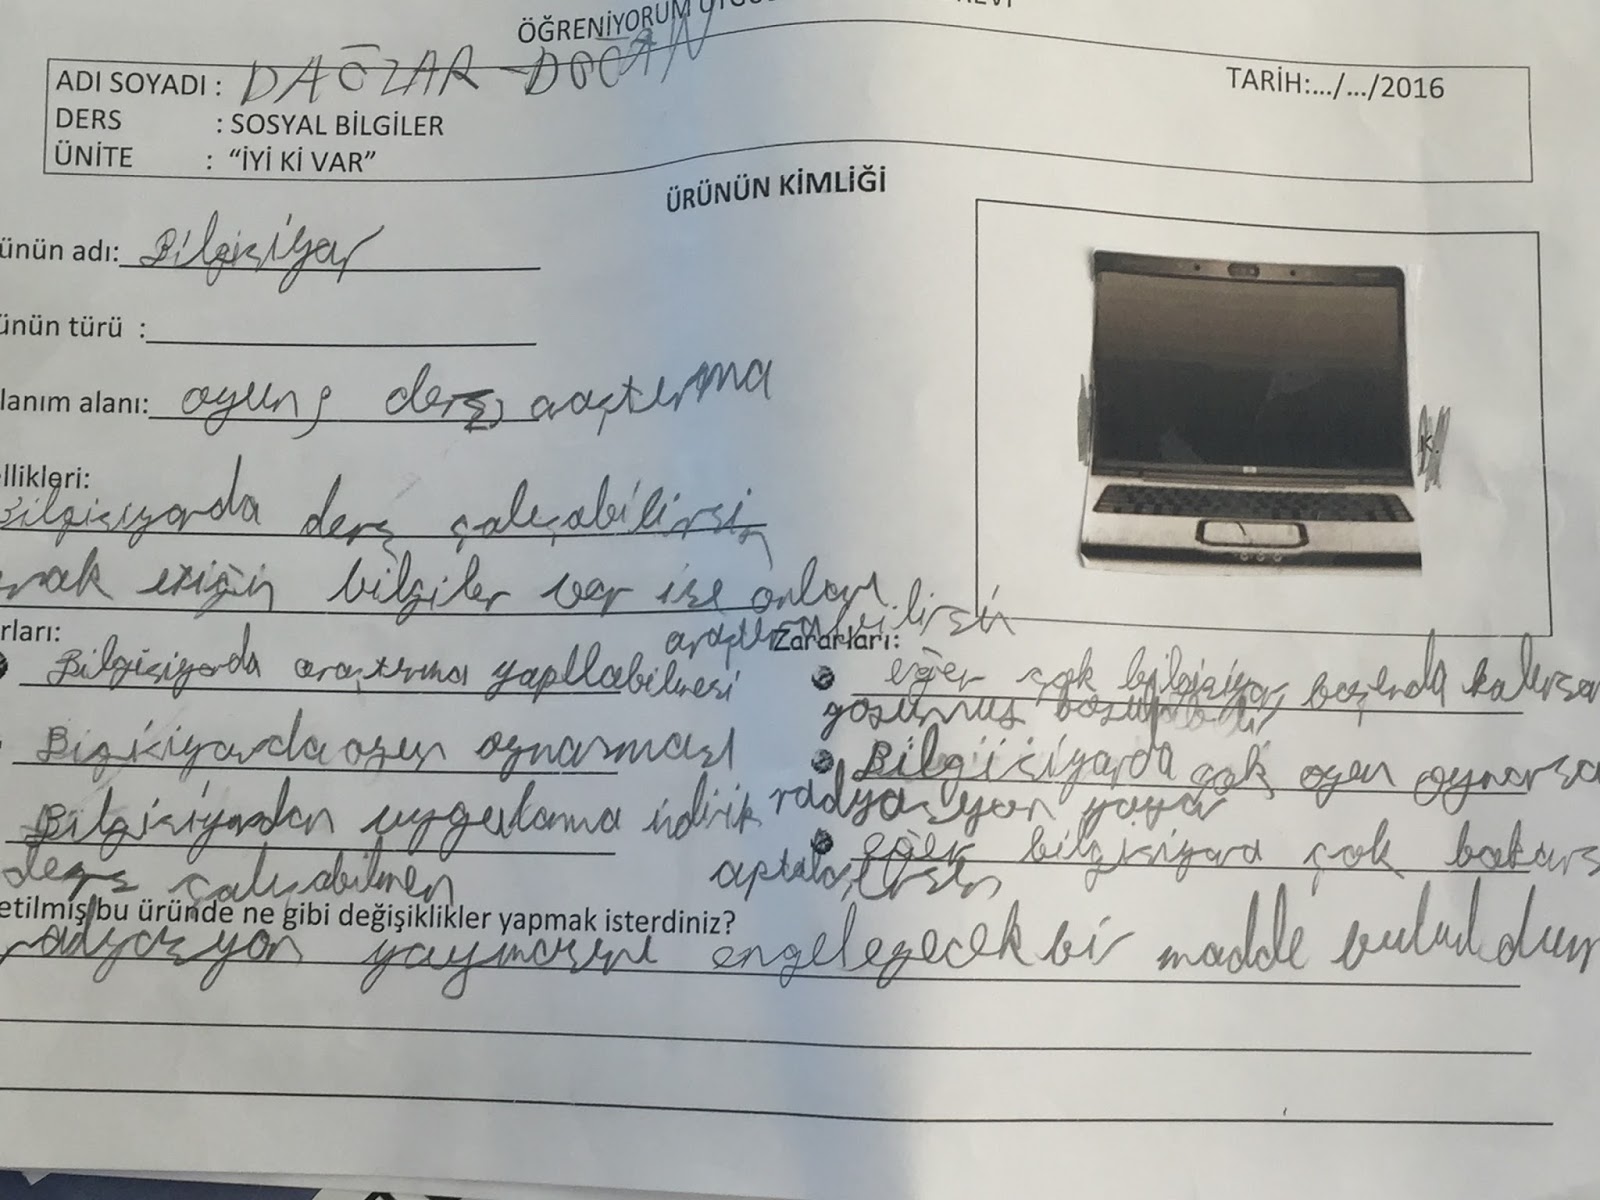 ÖĞRENİYORUM
ADI SOYADI : DAĞLAR DOĞAN
TARİH:.../.../2016
DERS : SOSYAL BİLGİLER
ÜNİTE : “İYİ Kİ VAR”
ÜRÜNÜN KİMLİĞİ
ünün adı: Bilgisiyar
ünün türü :
lanım alanı: oyun, ders, araştırma
llikleri:
Bilgisiyarda ders çalışabilirsin
bilgiler var ise onları
araştırabilirsin
rları:
Zararları:
Bilgisiyarda araştırma yapılabilmesi
eğer çok bilgisiyar başında kalırsan
gözümüz bozulabilir
Bigisiyarda oyun oynanması
Bilgisiyarda çok oyun oynarsa
radyasyon yayar
Bilgisiyardan uygulama indirik
ders çalışabilmen
eğer bilgisiyara çok bakars
aptalaşırsın
etilmiş bu üründe ne gibi değişiklikler yapmak isterdiniz?
radyasyon yaymasını engeleyecek bir madde bulurdum